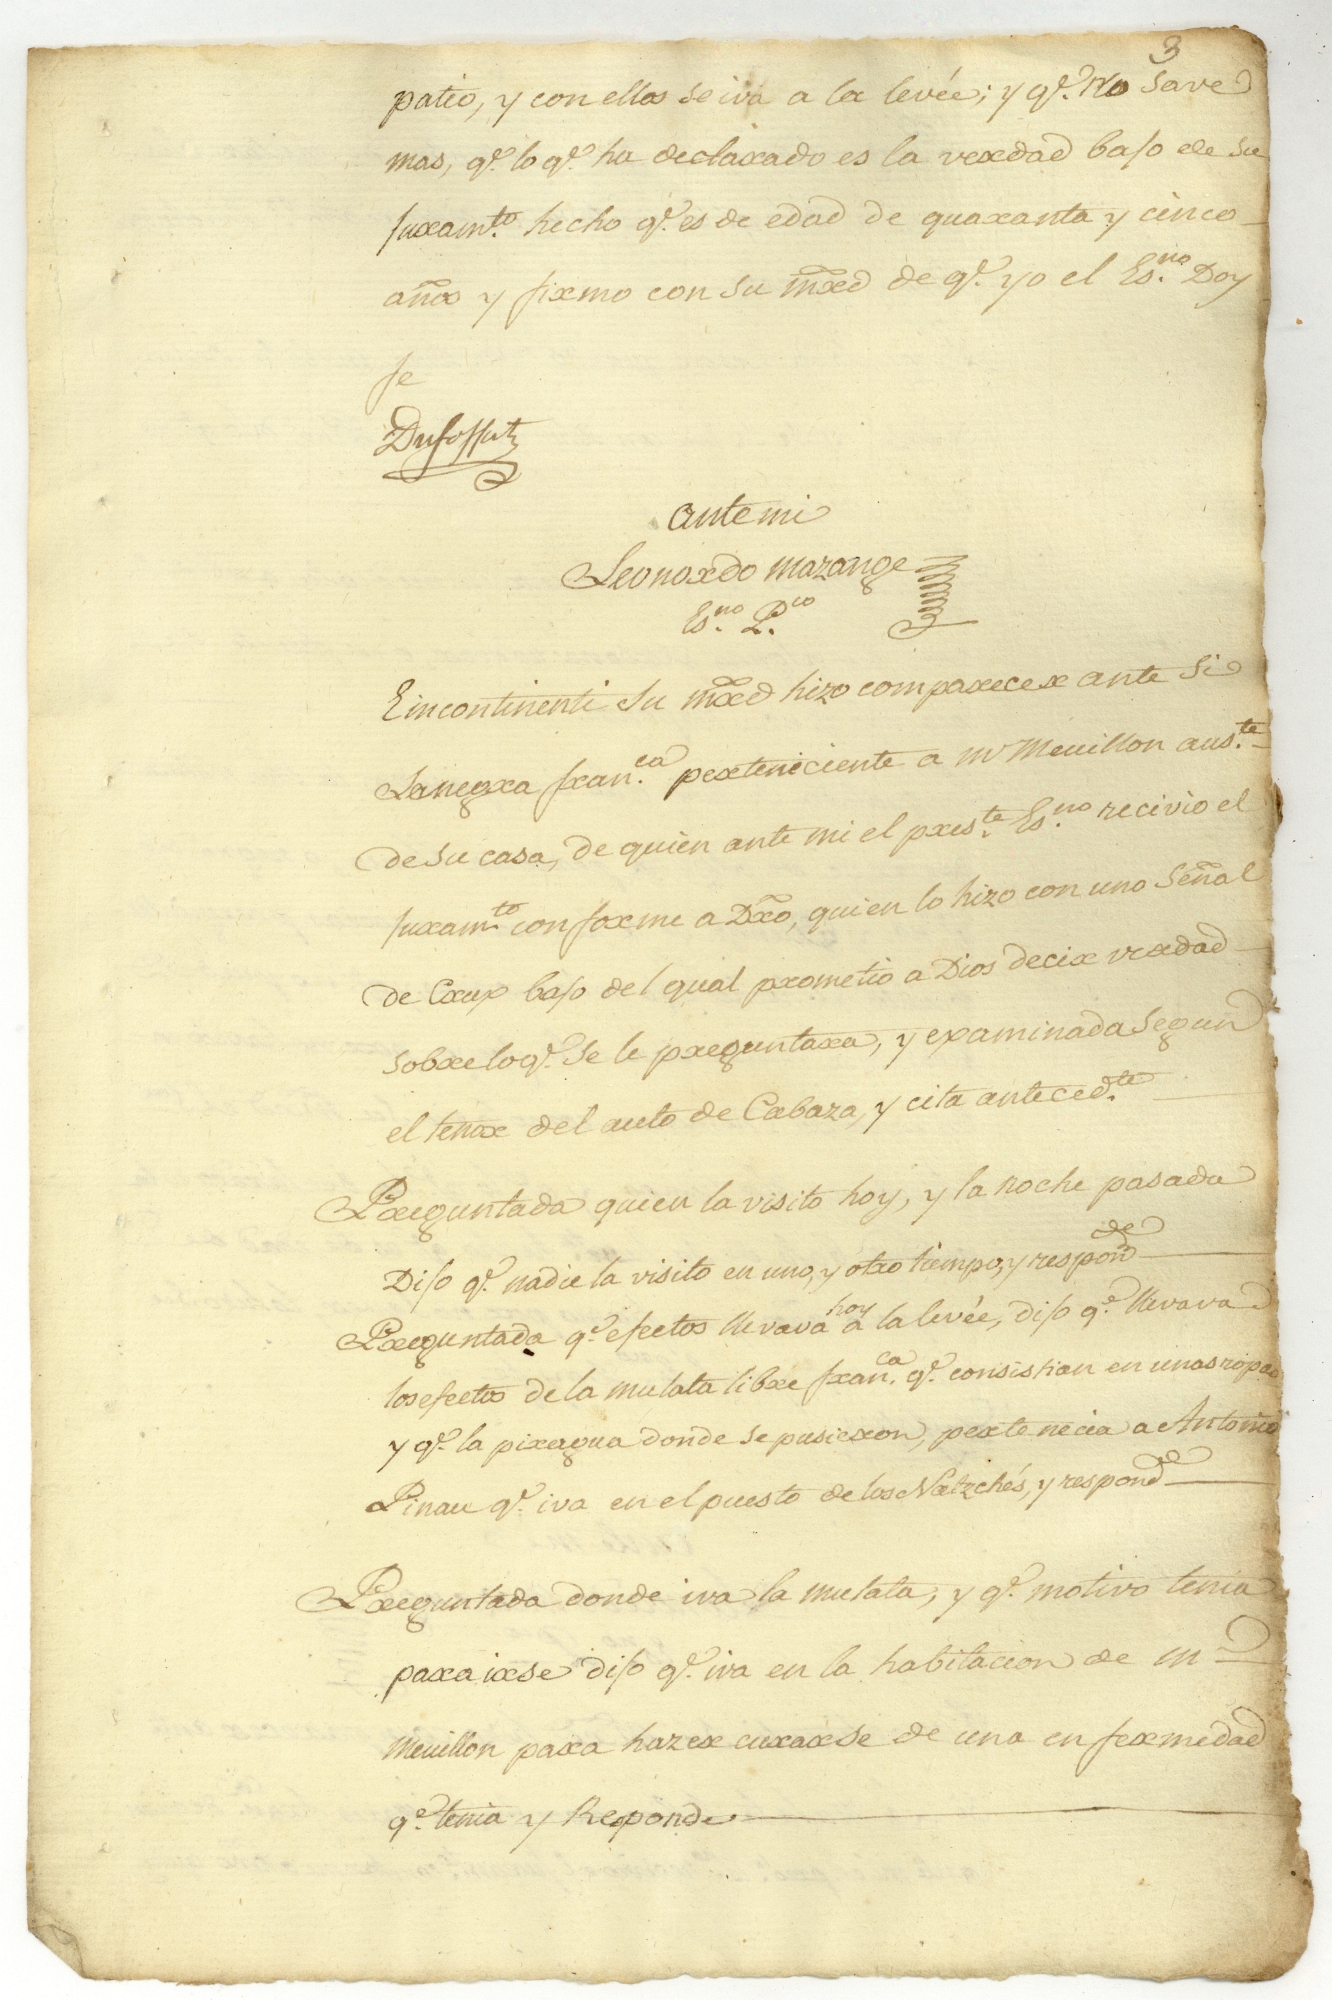 3
patio, y con ellos se iva a la levée; y qe. no save
mas, qe. lo qe. ha declarado es la verdad bajo de su
juramto. hecho qe. es de edad de quaranta y cinco
años y firmo con su mrd de qe. yo el Esno. Doy
fe
Dufossat
ante mi
Leonardo Mazange
Esno. Pco.
E incontinenti su mrd hizo comparecer ante si
La negra franca. perteneciente a mr Meuillon auste.
de su casa, de quien ante mi el preste. Esno. recivio el
juramto. conforme a Dro, quien lo hizo con uno señal
de Crux bajo del qual prometio a Dios decir verdad
sobre lo qe. se le preguntara, y examinada segun
el tenor del auto de Cabaza, y cita antecedte.
Preguntada quien la visito hoy, y la noche pasada
Dijo qe. nadie la visito en uno, y otro tiempo, y responde
Preguntada qe. efectos llevava hoy a la levée, dijo qe. llevava
los efectos de la mulata libre franca. qe. consistian en unas ropas
y qe. la piragua donde se pusieron, pertenecia a Antonio
Pinau qe. iva en el puesto de los Natzchés, y responde
Preguntada donde iva la mulata, y qe. motivo tenia
para irse dijo qe. iva en la habitacion de mr
Meuillon para hazer curarse de una enfermedad
qe. tenia y Responde